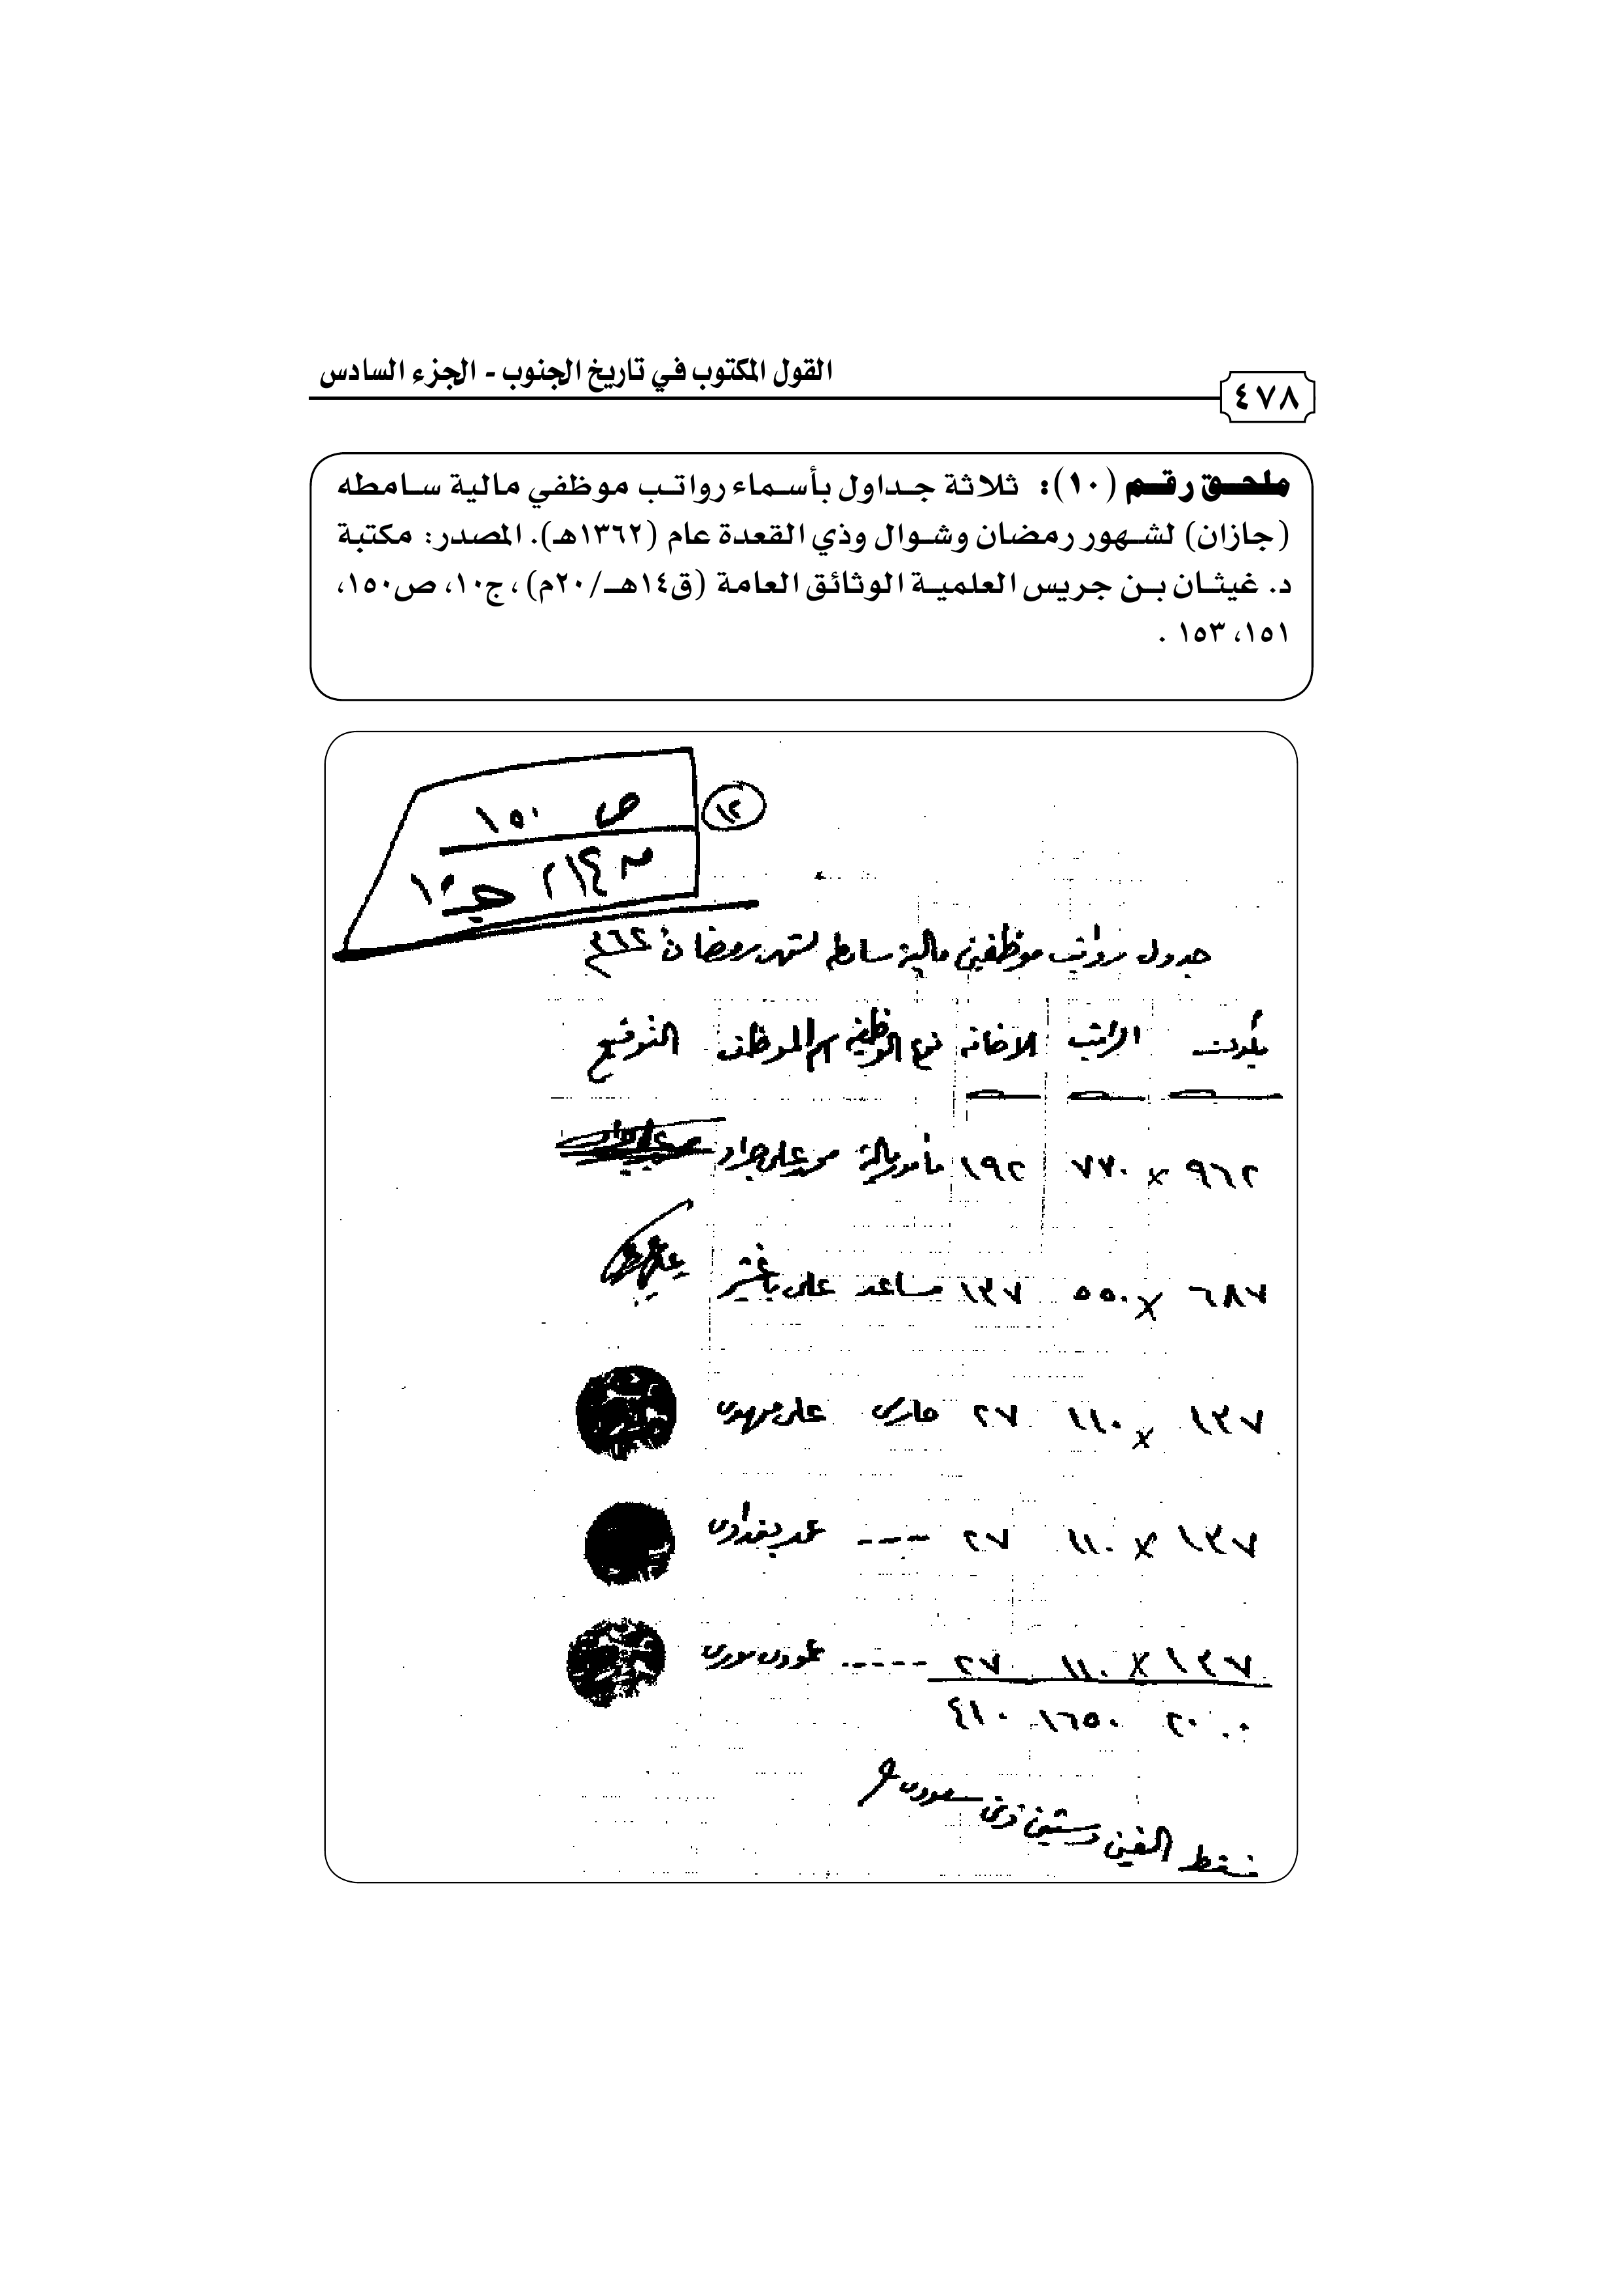 القول المكتوب في تاريخ الجنوب - الجزء السادس
٤٧٨
ملحق رقم (١٠): ثلاثة جداول بأسماء رواتب موظفي مالية سامطه
(جازان) لشهور رمضان وشوال وذي القعدة عام (١٣٦٢هـ). المصدر: مكتبة
د. غيثان بن جريس العلمية الوثائق العامة (ق١٤هـ/٢٠م)، ج١٠، ص١٥٠،
١٥١، ١٥٣ .
ص ١٥٠
١٢
جـ ١٠
جدول رواتب موظفين مالية سامطه لشهر رمضان ٣٦٢
يكون الراتب الاضافه نوع الوظيفه اسم الموظف التوقيع
٩٦٢ × ٧٧٠ ١٩٢ مأمور مالية محمد علي جراد
٦٨٧ × ٥٥٠ ١٣٧ مساعد علي باعشر
١٣٧ × ١١٠ ٢٧ حارس علي مهدي
١٣٧ × ١١٠ ٢٧ --- بغدادي
١٣٧ × ١١٠ ٢٧ -----
٢٠٦٠ ١٦٥٠ ٤١٠
فقط الفين وستين قرش سعودي